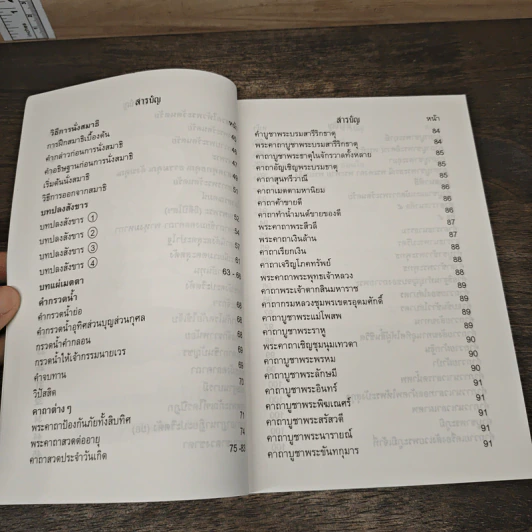 สารบัญ
หน้า
วิธีการนั่งสมาธิ
การฝึกสมาธิเบื้องต้น
คำกล่าวก่อนการนั่งสมาธิ
คำอธิษฐานก่อนการนั่งสมาธิ
เริ่มต้นนั่งสมาธิ
วิธีการออกจากสมาธิ
บทปลงสังขาร
บทปลงสังขาร ①
บทปลงสังขาร ②
บทปลงสังขาร ③
บทปลงสังขาร ④
บทแผ่เมตตา
คำกรวดน้ำ
คำกรวดน้ำย่อ
คำกรวดน้ำอุทิศส่วนบุญส่วนกุศล
กรวดน้ำคำกลอน
กรวดน้ำให้เจ้ากรรมนายเวร
คำจบทาน
วิปัสสิต
คาถาต่าง ๆ
พระคาถาป้องกันภัยทั้งสิบทิศ
พระคาถาสวดต่ออายุ
คาถาสวดประจำวันเกิด
สารบัญ
หน้า
คำบูชาพระบรมสารีริกธาตุ 84
พระคาถาบูชาพระบรมสารีริกธาตุ 84
คาถาบูชาพระธาตุในจักรวาลทั้งหลาย 85
คาถาอัญเชิญพระบรมธาตุ 85
คาถาสุนทรีวาณี 85
คาถาเมตตามหานิยม 86
คาถาค้าขายดี 86
คาถาทำน้ำมนต์ขายของดี 86
พระคาถาพระสีวลี 87
พระคาถาเงินล้าน 87
คาถาเรียกเงิน 88
คาถาเจริญโภคทรัพย์ 88
พระคาถาพระพุทธเจ้าหลวง 88
พระคาถาเจ้าตากสินมหาราช 89
คาถากรมหลวงชุมพรเขตรอุดมศักดิ์ 89
คาถาบูชาพระแม่โพสพ 89
คาถาบูชาพระราหู 89
พระคาถาเชิญชุมนุมเทวดา 90
คาถาบูชาพระพรหม 90
คาถาบูชาพระลักษมี 90
คาถาบูชาพระอินทร์ 91
คาถาบูชาพระพิฆเณศร์ 91
คาถาบูชาพระสรัสวดี 91
คาถาบูชาพระนารายณ์ 91
คาถาบูชาพระขันทกุมาร 91